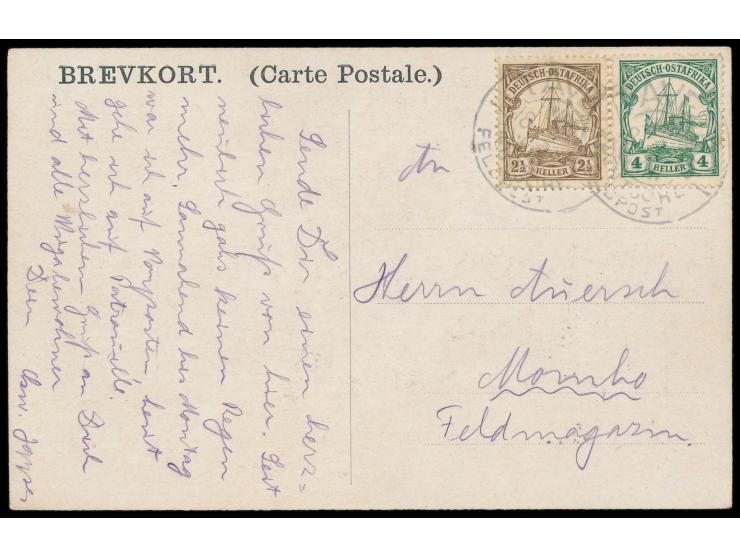 BREVKORT. (Carte Postale.)
DEUTSCH-OSTAFRIKA
2½ HELLER 2½
DEUTSCH-OSTAFRIKA
4 HELLER 4
FELDPOST
Sende Dir einen herz=
lichen Gruß von hier. Seit
neulich gabs keinen Regen
mehr. Sonnabend bis Montag
war ich auf Vorposten, heut
gehe ich auf Patrouille.
Mit herzlichem Gruß an Dich
und alle
Dein
An
Herrn Auersch
Mombo
Feldmagazin.